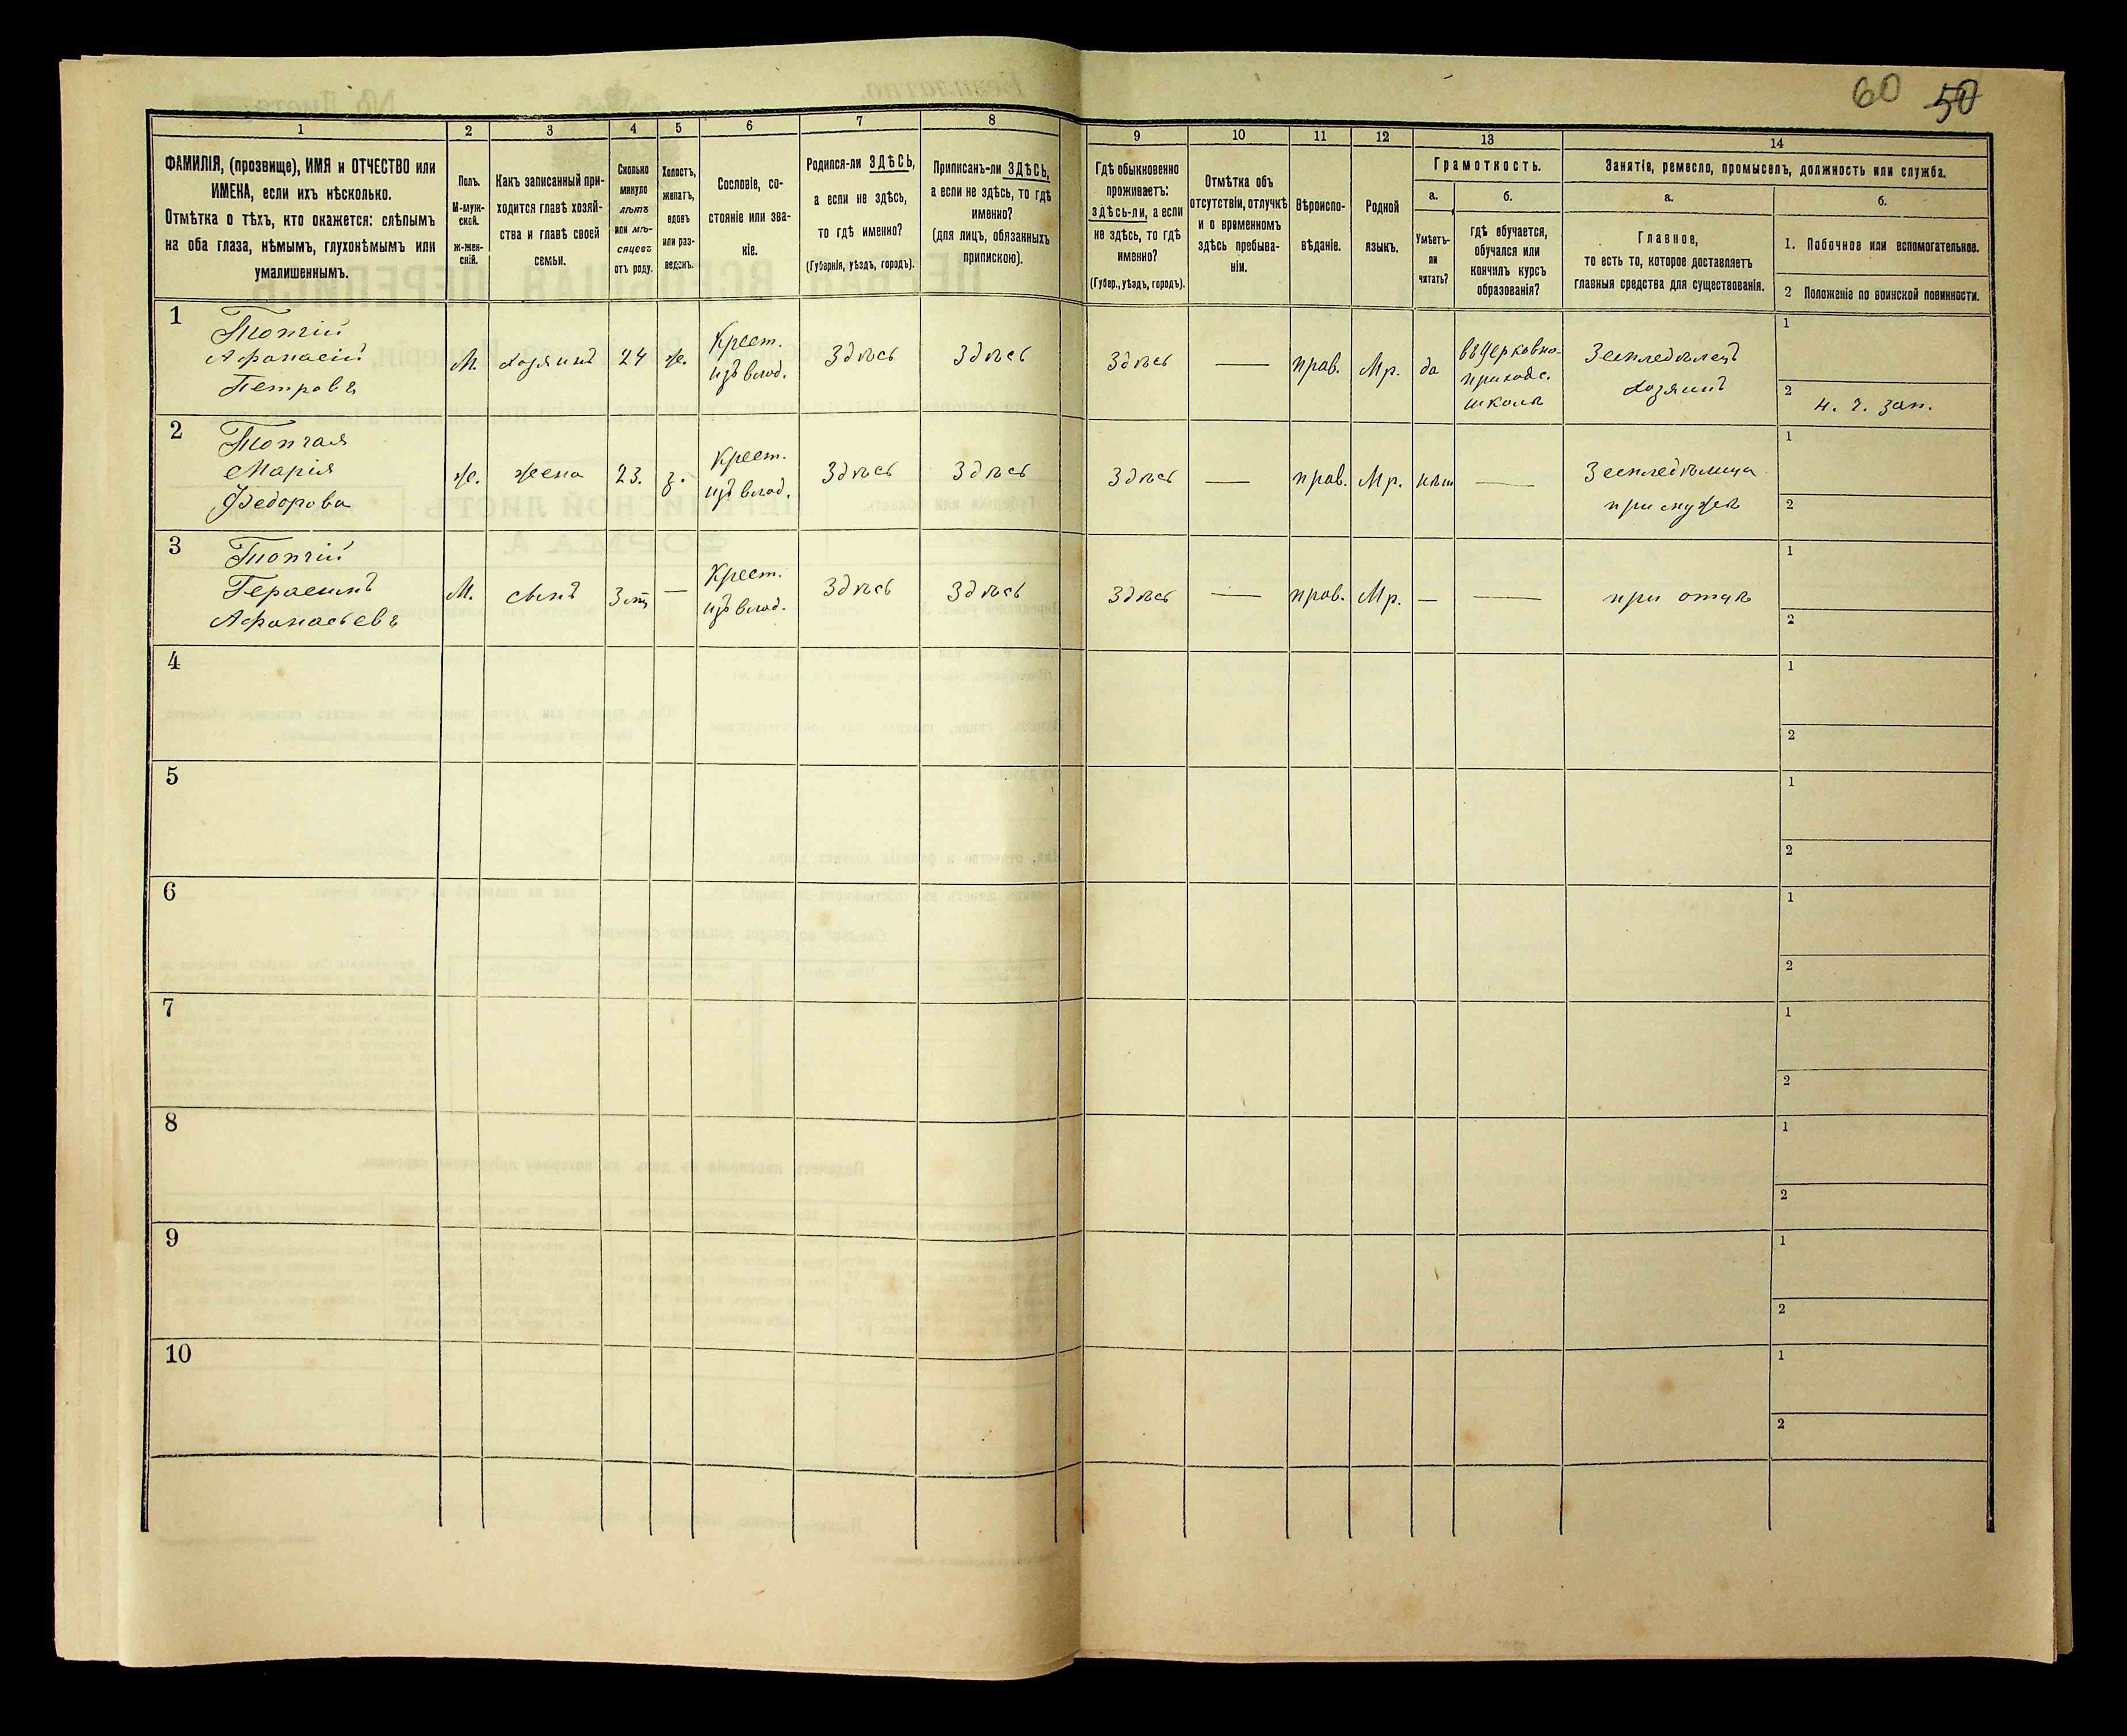 60 50
1 2 3 4 5 6 7 8 9 10 11 12 13 14
ФАМИЛІЯ, (прозвище), ИМЯ и ОТЧЕСТВО или
ИМЕНА, если ихъ нѣсколько.
Отмѣтка о тѣхъ, кто окажется: слѣпымъ
на оба глаза, нѣмымъ, глухонѣмымъ или
умалишеннымъ.
Полъ.
М-муж-
ской.
ж-жен-
скій.
Какъ записанный при-
ходится главѣ хозяй-
ства и главѣ своей
семьи.
Сколько
минуло
лѣтъ
или мѣ-
сяцевъ
отъ роду.
Холостъ,
женатъ,
вдовъ
или раз-
веденъ.
Сословіе, со-
стояніе или зва-
ніе.
Родился-ли ЗДѢСЬ,
а если не здѣсь,
то гдѣ именно?
(Губернія, уѣздъ, городъ).
Приписанъ-ли ЗДѢСЬ,
а если не здѣсь, то гдѣ
именно?
(для лицъ, обязанныхъ
припискою).
Гдѣ обыкновенно
проживаетъ:
здѣсь-ли, а если
не здѣсь, то гдѣ
именно?
(Губер., уѣздъ, городъ).
Отмѣтка объ
отсутствіи, отлучкѣ
и о временномъ
здѣсь пребыва-
ніи.
Вѣроиспо-
вѣданіе.
Родной
языкъ.
Грамотность.
а.
Умѣетъ-
ли
читать?
б.
гдѣ обучается,
обучался или
кончилъ курсъ
образованія?
Занятія, ремесло, промыселъ, должность или служба.
а.
Главное,
то есть то, которое доставляетъ
главныя средства для существованія.
б.
1. Побочное или вспомогательное.
2 Положеніе по воинской повинности.
1
Топчій
Афанасій
Петровъ
М. хозяинъ 24 ж.
Крест.
изъ влад.
Здѣсь Здѣсь Здѣсь — прав. Мр. да
въ церковно-
приходс.
школѣ
Земледѣлецъ
хозяинъ
1
2 4. г. зап.
2
Топчая
Марія
Федорова
ж. жена 23. з.
Крест.
изъ влад.
Здѣсь Здѣсь Здѣсь — прав. Мр. нѣт —
Земледѣлица
при мужѣ
1
2
3
Топчій
Герасимъ
Афанасьевъ
М. сынъ 3 —
Крест.
изъ влад.
Здѣсь Здѣсь Здѣсь — прав. Мр. — —
при отцѣ
1
2
4 1
2
5 1
2
6 1
2
7 1
2
8 1
2
9 1
2
10 1
2